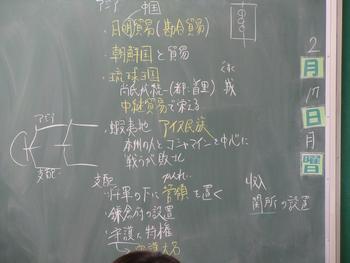 アジア 中国
・日明貿易(勘合貿易)
・朝鮮国と貿易
・琉球王国
尚氏が統一(都:首里)
ぐすく
城
中継貿易で栄える
・蝦夷地 アイヌ民族
本州の人とコシャマインを中心に
戦うが敗北
アジア
支配
支配
かんれい
・将軍の下に管領を置く
・鎌倉府の設置
・守護に特権
→守護大名
収入
関所の設置
2
月
17
日
月
曜